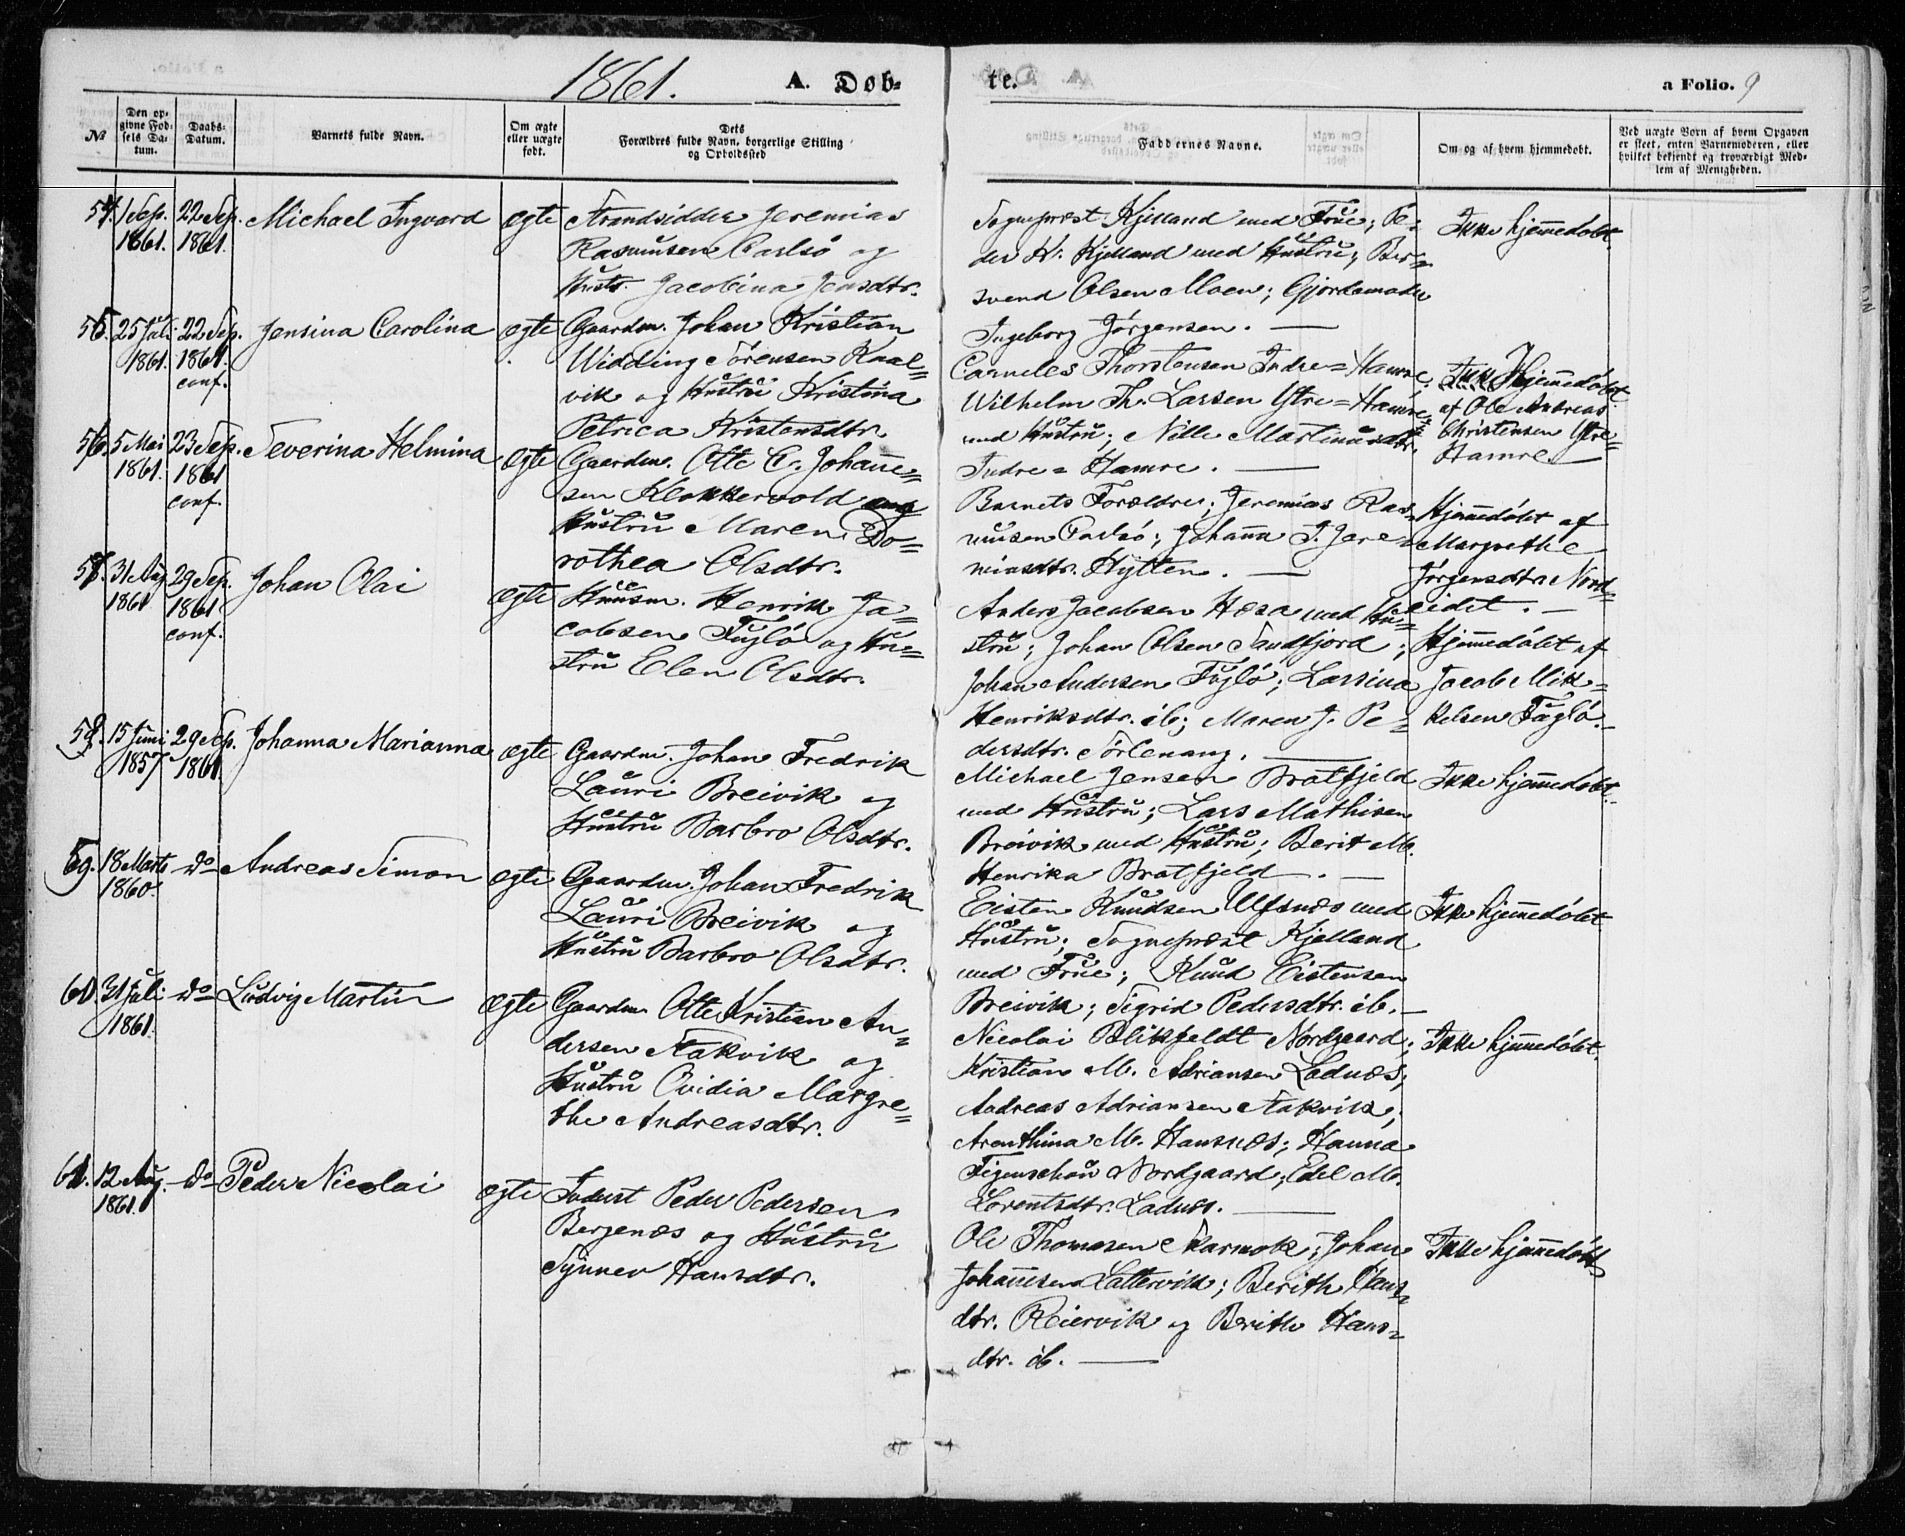 1861.
A. Døb-
te.
a Folio. 9
№
Den op-
givne Fød-
sels Da-
tum.
Daabs-
Datum.
Barnets fulde Navn.
Om ægte
eller uægte
født.
Dets
Forældres fulde Navn, borgerlige Stilling
og Opholdssted
Faddernes Navne.
Om og af hvem hjemmedøbt.
Ved uægte Børn af hvem Opgaven
er skeet, enten Barnemoderen, eller
hvilket bekjendt og troværdigt Med-
lem af Menigheden.
54. 1 Sep. 1861. 22 Sep. 1861. Michael Ingvard ægte
Strandsidder Jeremias
Rasmusen Carlsö og
Hustr. Jacobina Jensdtr.
Sognepræst Kjelland med Frue; Pe-
der K. Kjelland med Hustru; Ber-
svend Olsen Moen; Gjordemoder
Ingeborg Jørgensen. —
Ikke hjemmedøbt
55. 25 Juli 1861. 22 Sep. 1861. conf. Jensina Carolina ægte
Gaardm. Johan Kristian
Widding Sörensen Kaal=
vik og Hustru Kristina
Petrica Kristensdtr.
Corneles Thorstensen Indre=Hamre;
Wilhelm Th. Larsen Ytre=Hamre
med Hustru; Nille Martinusdtr.
Indre=Hamre. —
Hjemmedøbt
af Ole Andreas
Christensen Ytre=
Hamre —
56. 5 Mai 1861. 23 Sep. 1861 conf. Severina Helmina ægte
Gaardm. Otte E. Johanne=
sen Klokkervold og
Hustru Maren Do=
rothea Olsdtr.
Barnets Forældre; Jeremias Ras=
musen Carlsö; Johanna J. Jere=
miasdtr. Hytten. —
Hjemmedøbt af
Margrethe
Jørgensdtr. Nord=
eidet. —
57. 31 Aug 1861 29 Sep. 1861. conf. Johan Olai ægte
Huusm. Henrik Ja=
cobsen Fuglö og Hu=
stru Elen Olsdtr.
Anders Jacobsen Hæsa med Hu=
stru; Johan Olsen Sandfjord;
Johan Andersen Fuglö; Larsina
Henriksdtr. ib; Maren J. Pe=
dersdtr. Sörlenang. —
Hjemmedøbt af
Jacob Mik=
kelsen Fuglö. —
58. 15 Juni 1857 29 Sep. 1861. Johanna Marianna ægte
Gaardm. Johan Fredrik
Lauri Breivik og
Hustru Barbro Olsdtr.
Michael Jensen Bratfjeld
med Hustru; Lars Mathisen
Breivik med Hustru; Berit M.
Henrika Bratfjeld. —
Ikke hjemmedøbt.
59. 18 Marts 1860. do Andreas Simon ægte
Gaardm. Johan Fredrik
Lauri Breivik og
Hustru Barbro Olsdtr.
Eisten Knudsen Ulfsnæs med
Hustru; Sognepræst Kjelland
med Frue; Knud Eistensen
Breivik; Sigrid Pedersdtr. ib. —
Ikke hjemmedøbt
60. 31 Juli 1861. do Ludvig Martin ægte
Gaardm Otte Kristian An=
dersen Stakvik og
Hustru Ovidia Margre=
the Andreasdtr.
Nicolai Blikfeldt Nordgaard;
Kristian M. Adriansen Ladnæs;
Andreas Adriansen Stakvik;
Arenthina M. Hansnæs; Hanna
Figenschou Nordgaard; Edel M.
Lorentsdtr. Ladnæs. —
Ikke hjemmedøbt.
61. 12 Aug. 1861. do Peder Nicolai ægte
Inderst Peder Pedersen
Bergenæs og Hustru
Synnev Hansdtr.
Ole Thomasen Skarmok; Johan
Johannesen Lattervik; Berith Hans=
dtr. Reiervik og Berith Hans=
dtr. ib. —
Ikke hjemmedøbt